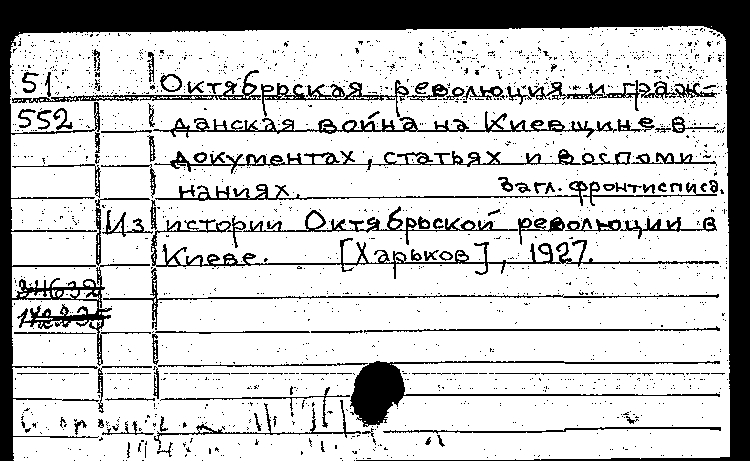 51 Октябрьская революция и граж-
552 данская война на Киевщине в
документах, статьях и воспоми-
наниях. Загл. фронтисписа.
Из истории Октябрьской революции в
Киеве. [Харьков], 1927.
34632